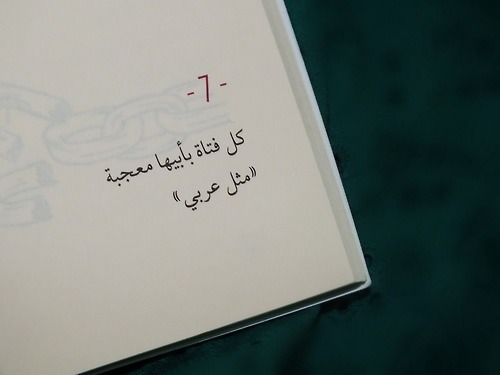 -7-
كل فتاة بأبيها معجبة
«مثل عربي»